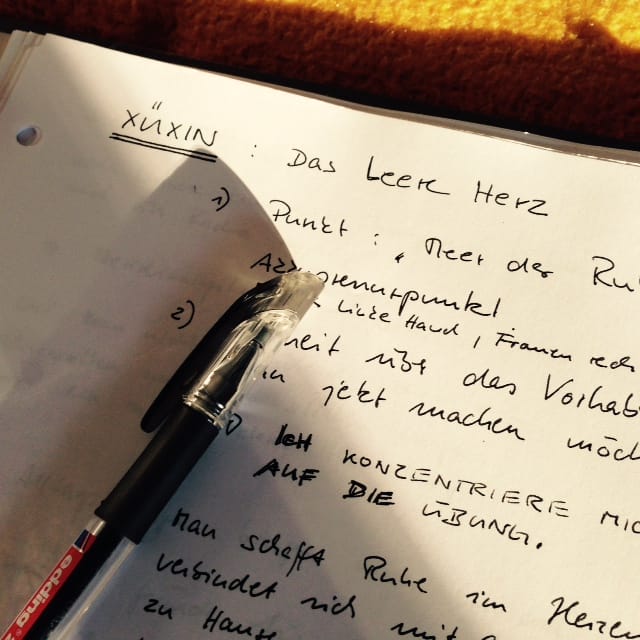 XÜXIN : Das Leere Herz
1) Punkt : „Meer der Ru
2)
Linke Hand, Frauen rech
über das Vorhab
jetzt machen möch
ICH KONZENTRIERE MIC
AUF DIE ÜBUNG.
Man schafft Ruhe im Herze
verbindet sich mit
zu Hause
edding